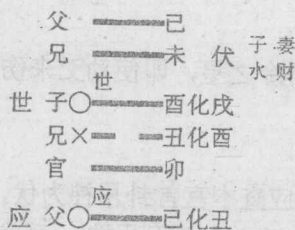 父 已
兄 未 伏 子水 妻财
世
世 子○ 酉化戌
兄× 丑化酉
官 卯
应
应 父○ 已化丑